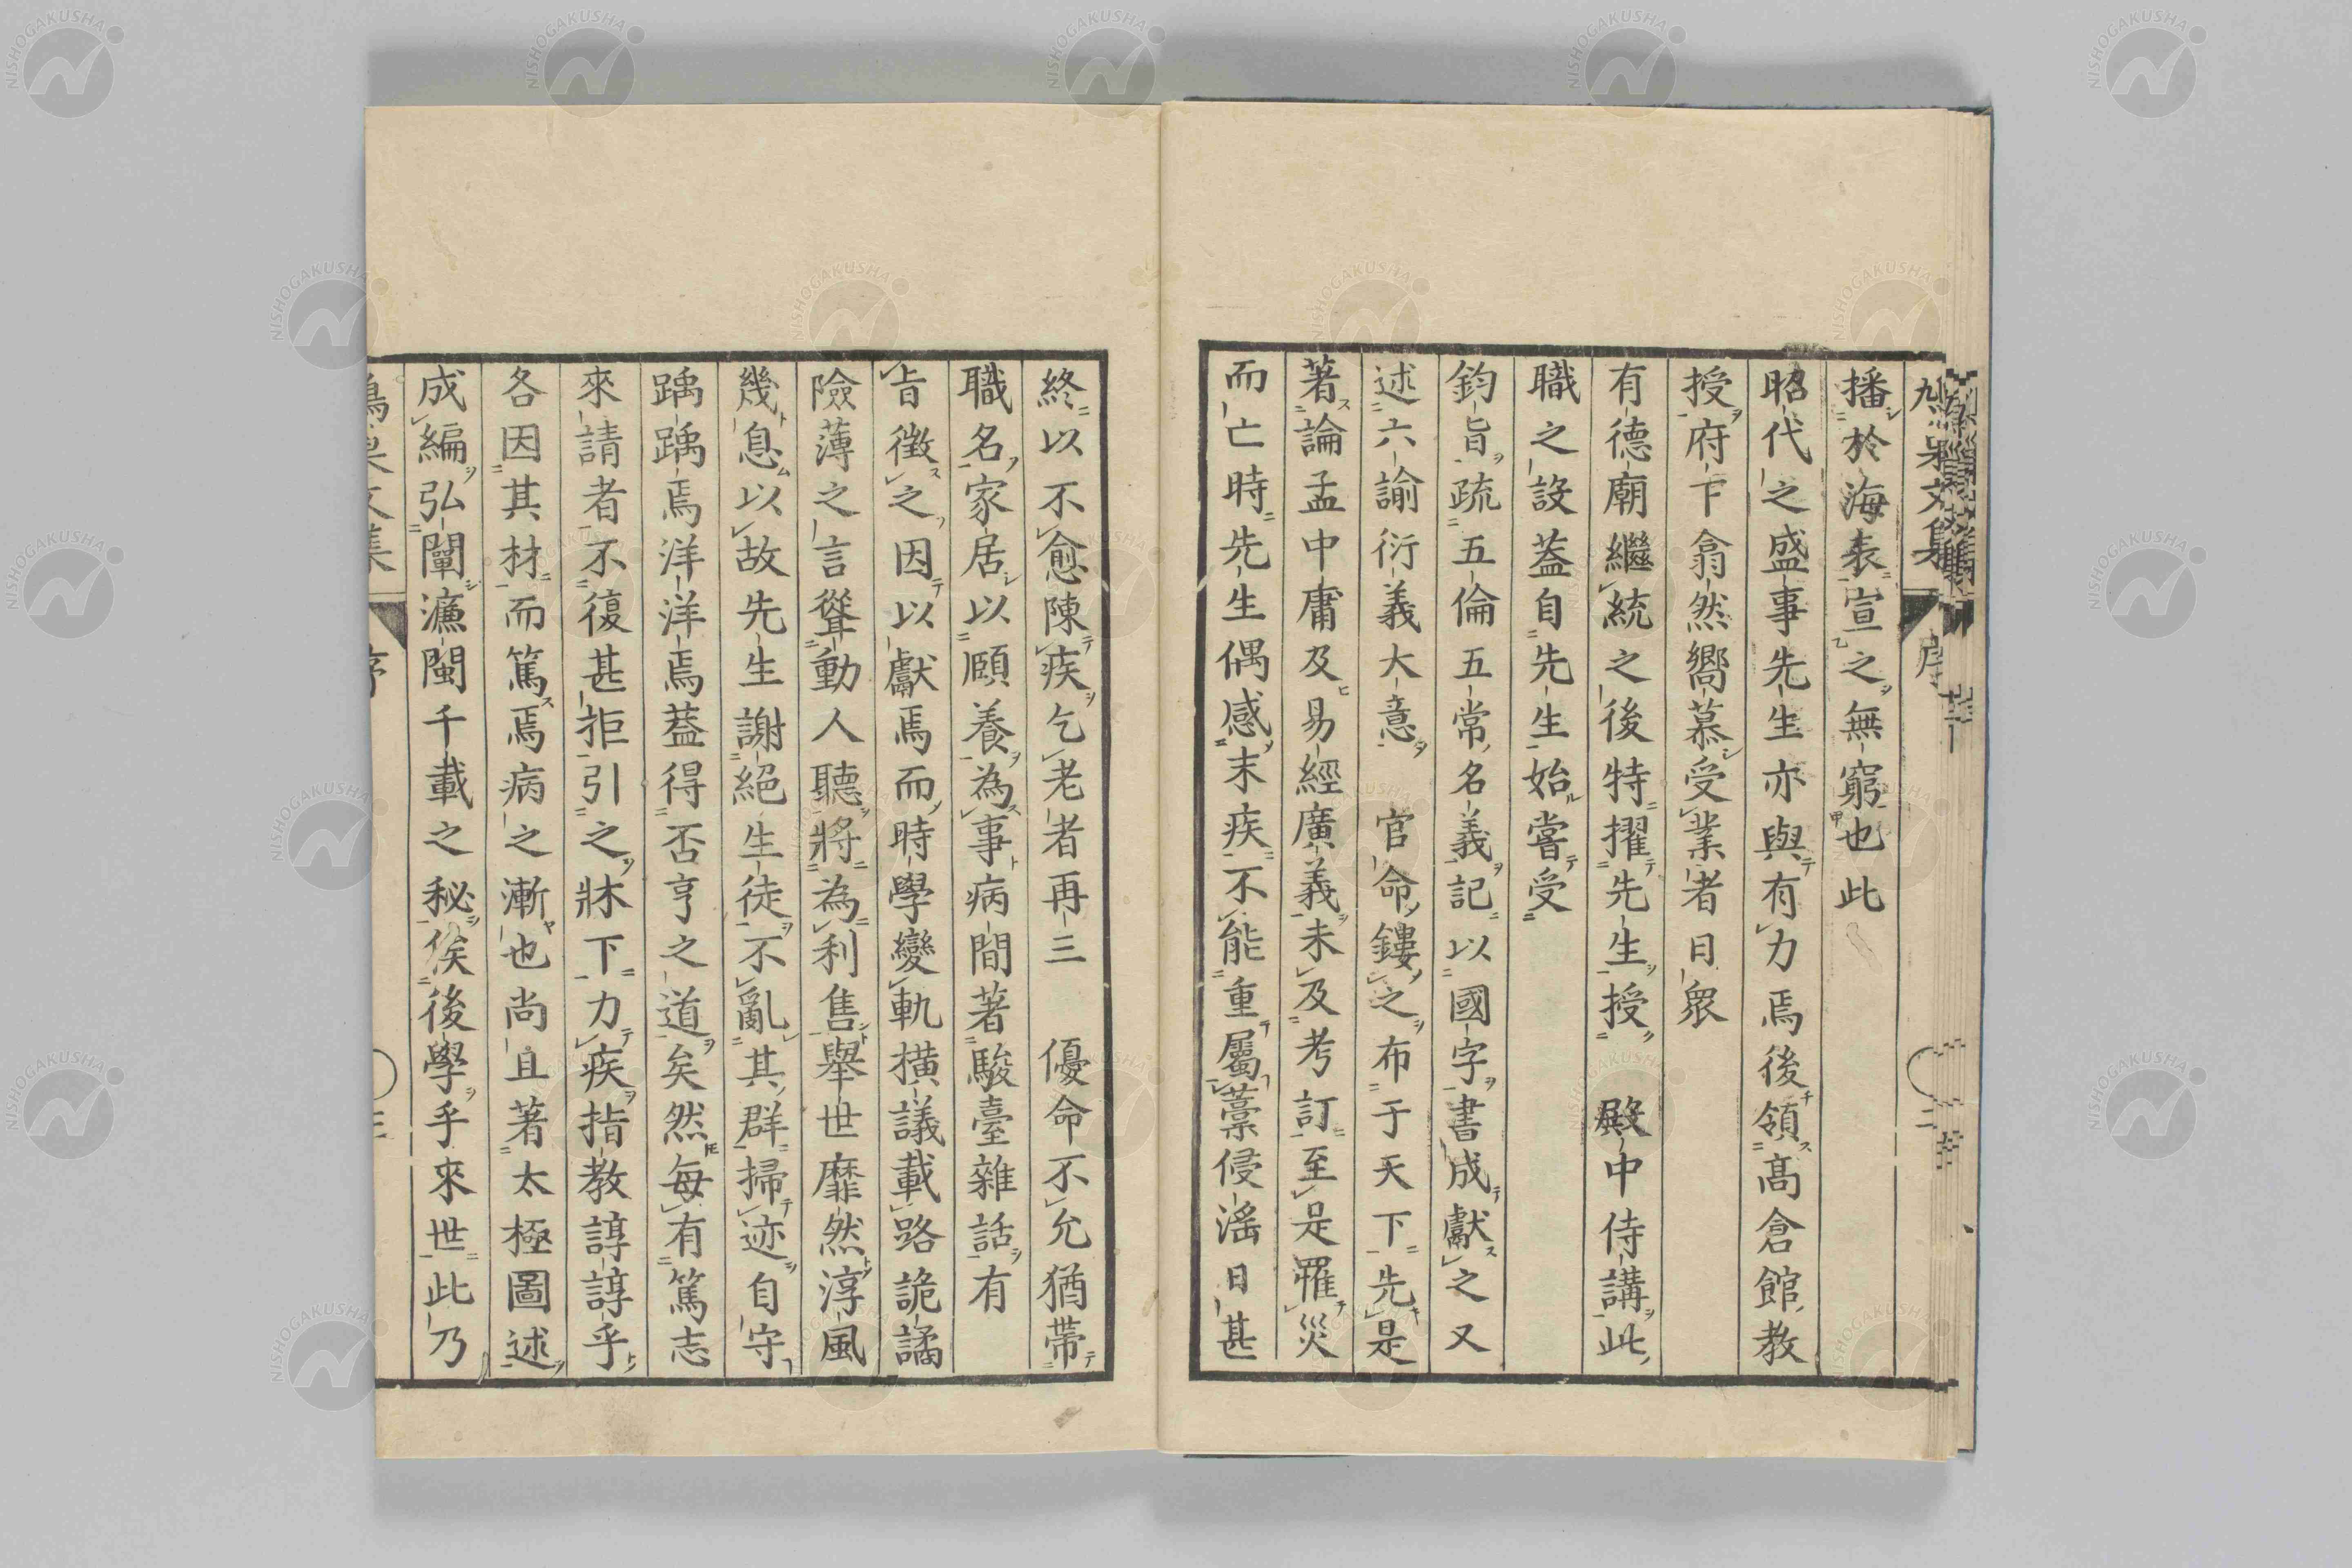 播於海表宣之無窮也此
昭代之盛事先生亦與有力焉後領高倉館教
授府下翕然嚮慕受業者日衆
有德廟繼統之後特擢先生授 殿中侍講此
職之設蓋自先生始嘗受
鈞旨疏五倫五常名義記以國字書成獻之又
述六諭衍義大意 官命鏤之布于天下先是
著論孟中庸及易經廣義未及考訂至是罹災
而亡時先生偶感末疾不能重屬藁侵滛日甚
終以不愈陳疾乞老者再三 優命不允猶帶
職名家居以頤養為事病間著駿臺雜話有
旨徵之因以獻焉而時學變軌橫議載路詭譎
險薄之言聳動人聽將為利售舉世靡然淳風
幾息以故先生謝絕生徒不亂其群掃迹自守
踽踽焉洋洋焉蓋得否亨之道矣然每有篤志
來請者不復甚拒引之牀下力疾指教諄諄乎
各因其材而篤焉病之漸也尚且著太極圖述
成編弘闡濂閩千載之秘俟後學乎來世此乃
鳩巢文集 序
NISHOGAKUSHA